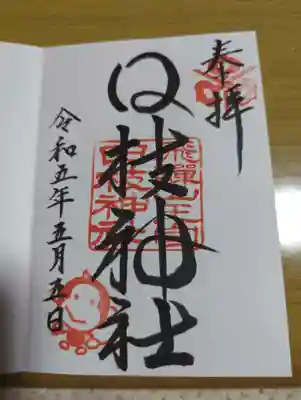 奉拝
日枝神社
飛騨山王宮
日枝神社
令和五年五月五日